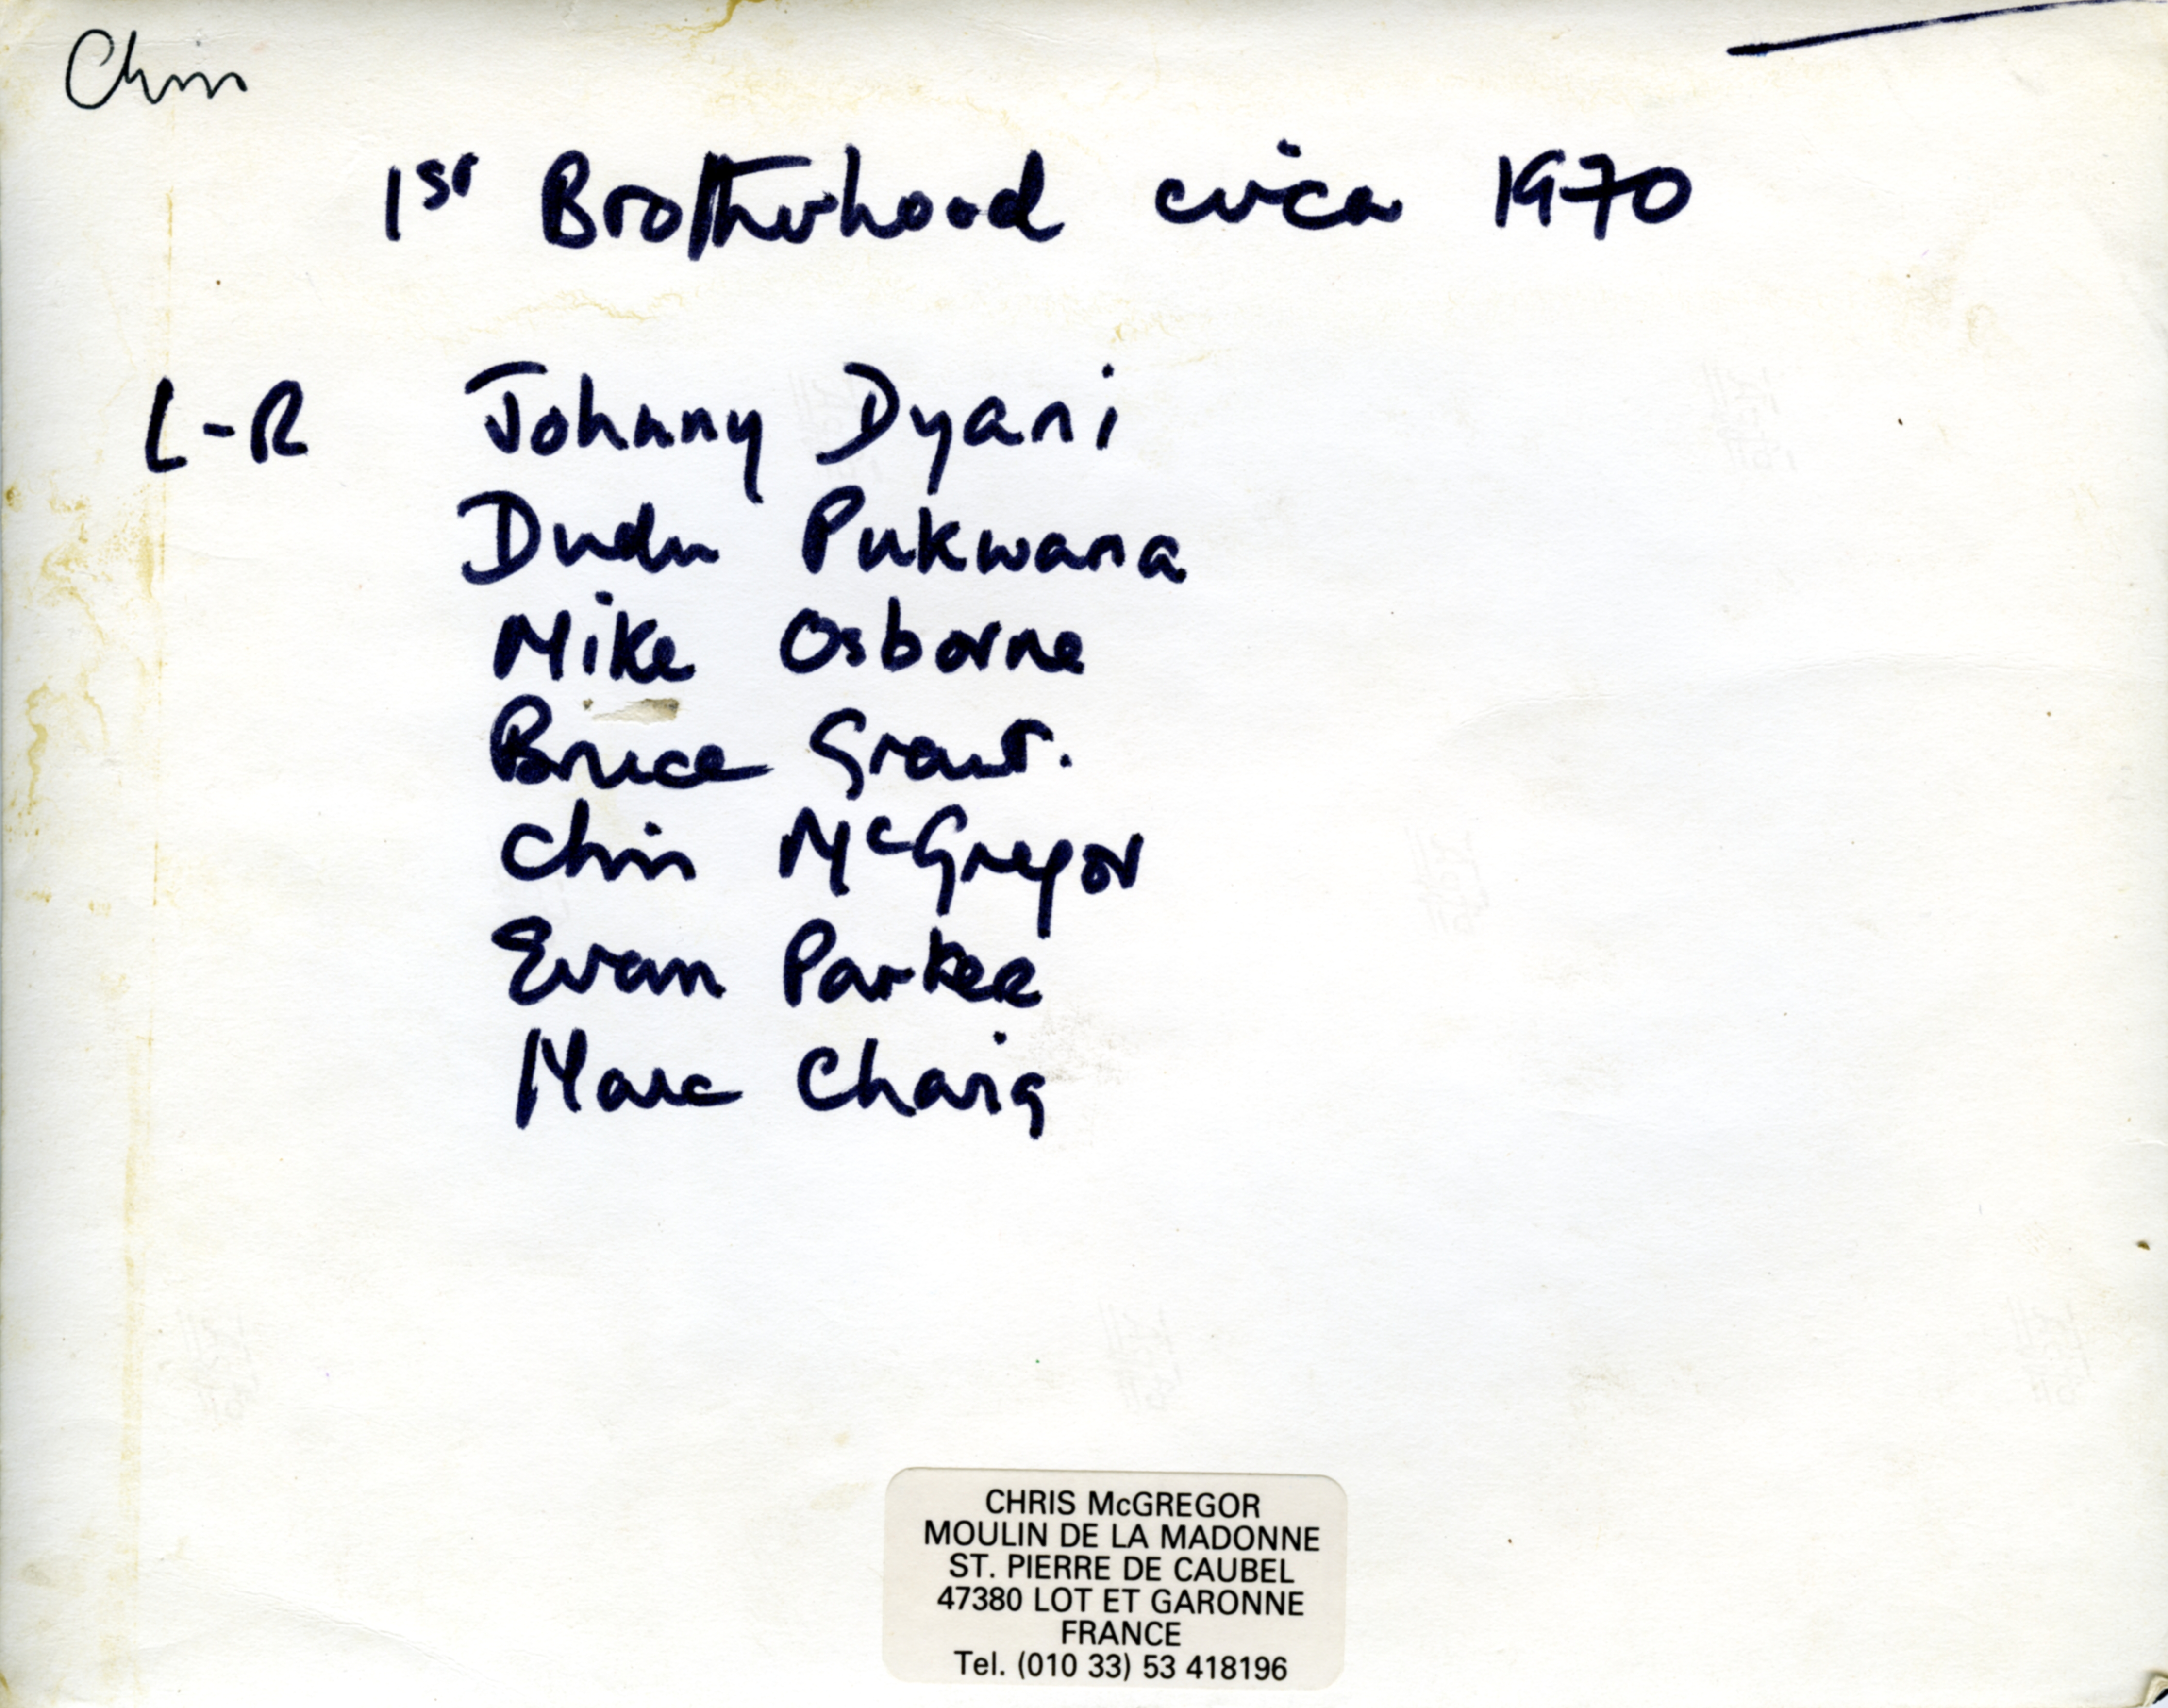 Chris
1st Brotherhood circa 1970
L-R Johnny Dyani
Dudu Pukwana
Mike Osborne
Bruce Grant.
Chris McGregor
Evan Parker
Marc Charig
CHRIS McGREGOR
MOULIN DE LA MADONNE
ST. PIERRE DE CAUBEL
47380 LOT ET GARONNE
FRANCE
Tel. (010 33) 53 418196